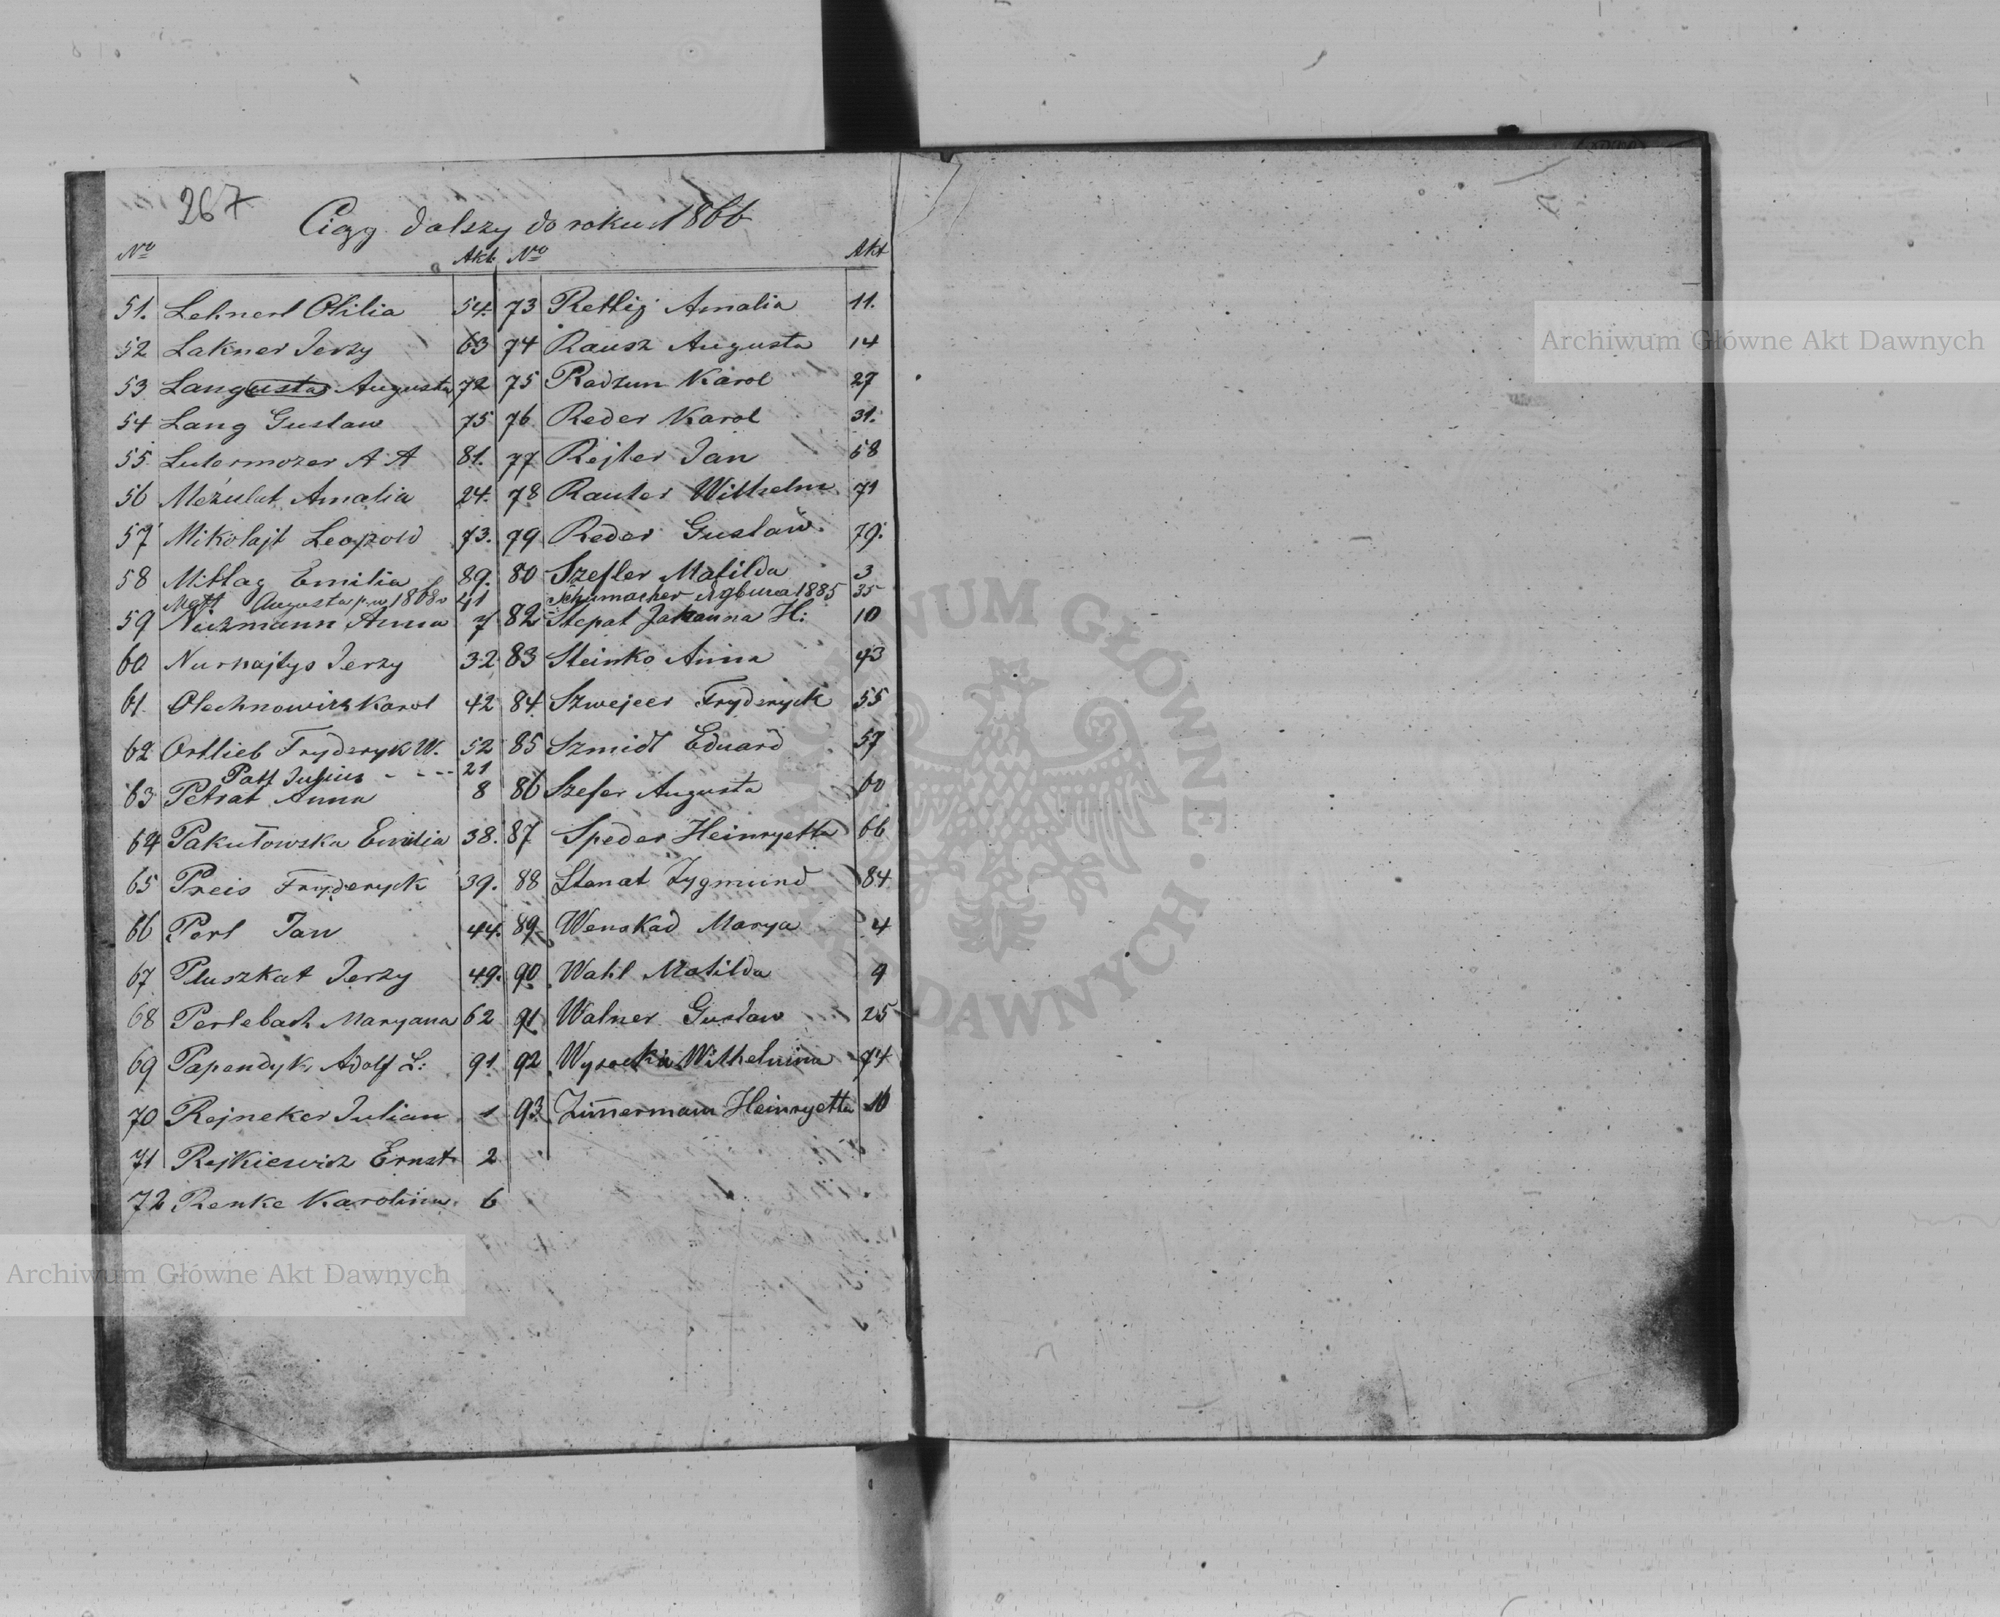 267
Ciąg dalszy do roku 1866
No Akt No Akt
51. Lehnert Otilia 54.
52 Lakner Jerzy 63
53 Langusta Augusta 72
54 Lang Gustaw 75
55 Lutermozer A A 81.
56 Mezulat Amalia 24.
57 Mikolajt Leopold 73.
58 Mittag Emilia 89.
Matt Augusta 1868 41
59 Neizmann Anna 7
60 Nurnajtys Jerzy 32
61 Olechnowicz Karol 42
62 Ortlieb Fryderyk W. 52
Patt Julius 21
63 Petrat Anna 8
64 Pakułowska Emilia 38.
65 Preis Fryderyck 39.
66 Perl Jan 44.
67 Pluszkat Jerzy 49.
68 Perlebach Maryana 62
69 Papendyk Adolf L: 91
70 Rejneker Julian 1
71 Rejkiewicz Ernst 2
72 Renke Karolina 6
73 Rettig Amalia 11.
74 Rausz Augusta 14
75 Radzun Karol 27
76 Reder Karol 31.
77 Rejter Jan 58
78 Rauter Wilhelm 71
79 Reder Gustaw. 79.
80 Szefler Matilda 3
Schumacher 1885 35
82 Stepat Johanna H: 10
83 Steinko Anna 43
84 Szwejcer Fryderyck 55
85 Szmidt Eduard 57
86 Szefer Augusta 60
87 Speder Heinryetta 66
88 Stanat Zygmund 84
89 Wenskad Marya 4
90 Wahl Matilda 9
91 Walner Gustaw 25
92 Wysocka Wilhelmina 74
93 Zimermann Heinryetta 16
Archiwum Główne Akt Dawnych
Archiwum Główne Akt Dawnych
ARCHIWUM GŁÓWNE AKT DAWNYCH